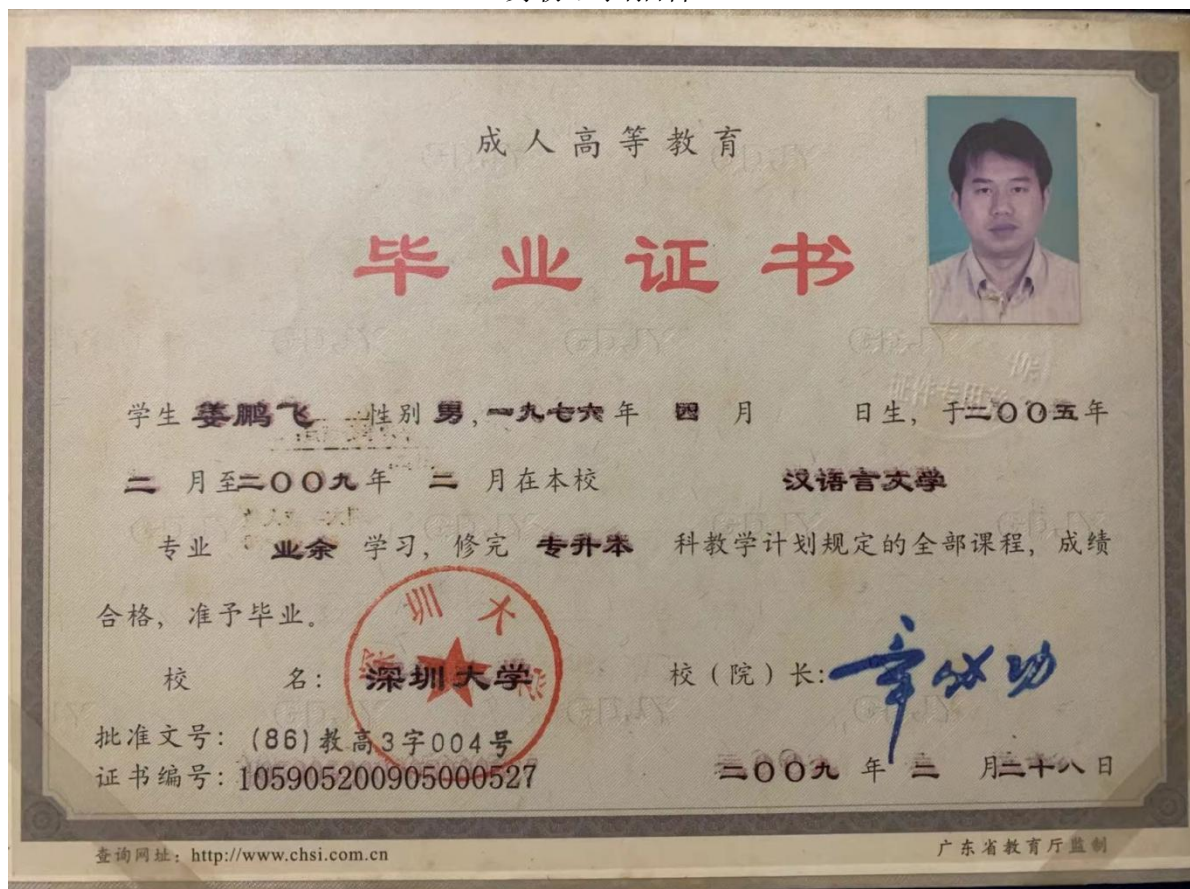 成人高等教育
毕业证书
学生 姜鹏飞 性别 男，一九七六年 四 月 日生，于二〇〇五年
二 月至二〇〇九年 二 月在本校 汉语言文学
专业 业余 学习，修完 专升本 科教学计划规定的全部课程，成绩
合格，准予毕业。
校 名：深圳大学 校（院）长：章必功
深圳大学
批准文号：(86)教高3字004号
证书编号：105905200905000527 二〇〇九 年 二 月二十八日
证件专用章
查询网址：http://www.chsi.com.cn 广东省教育厅监制